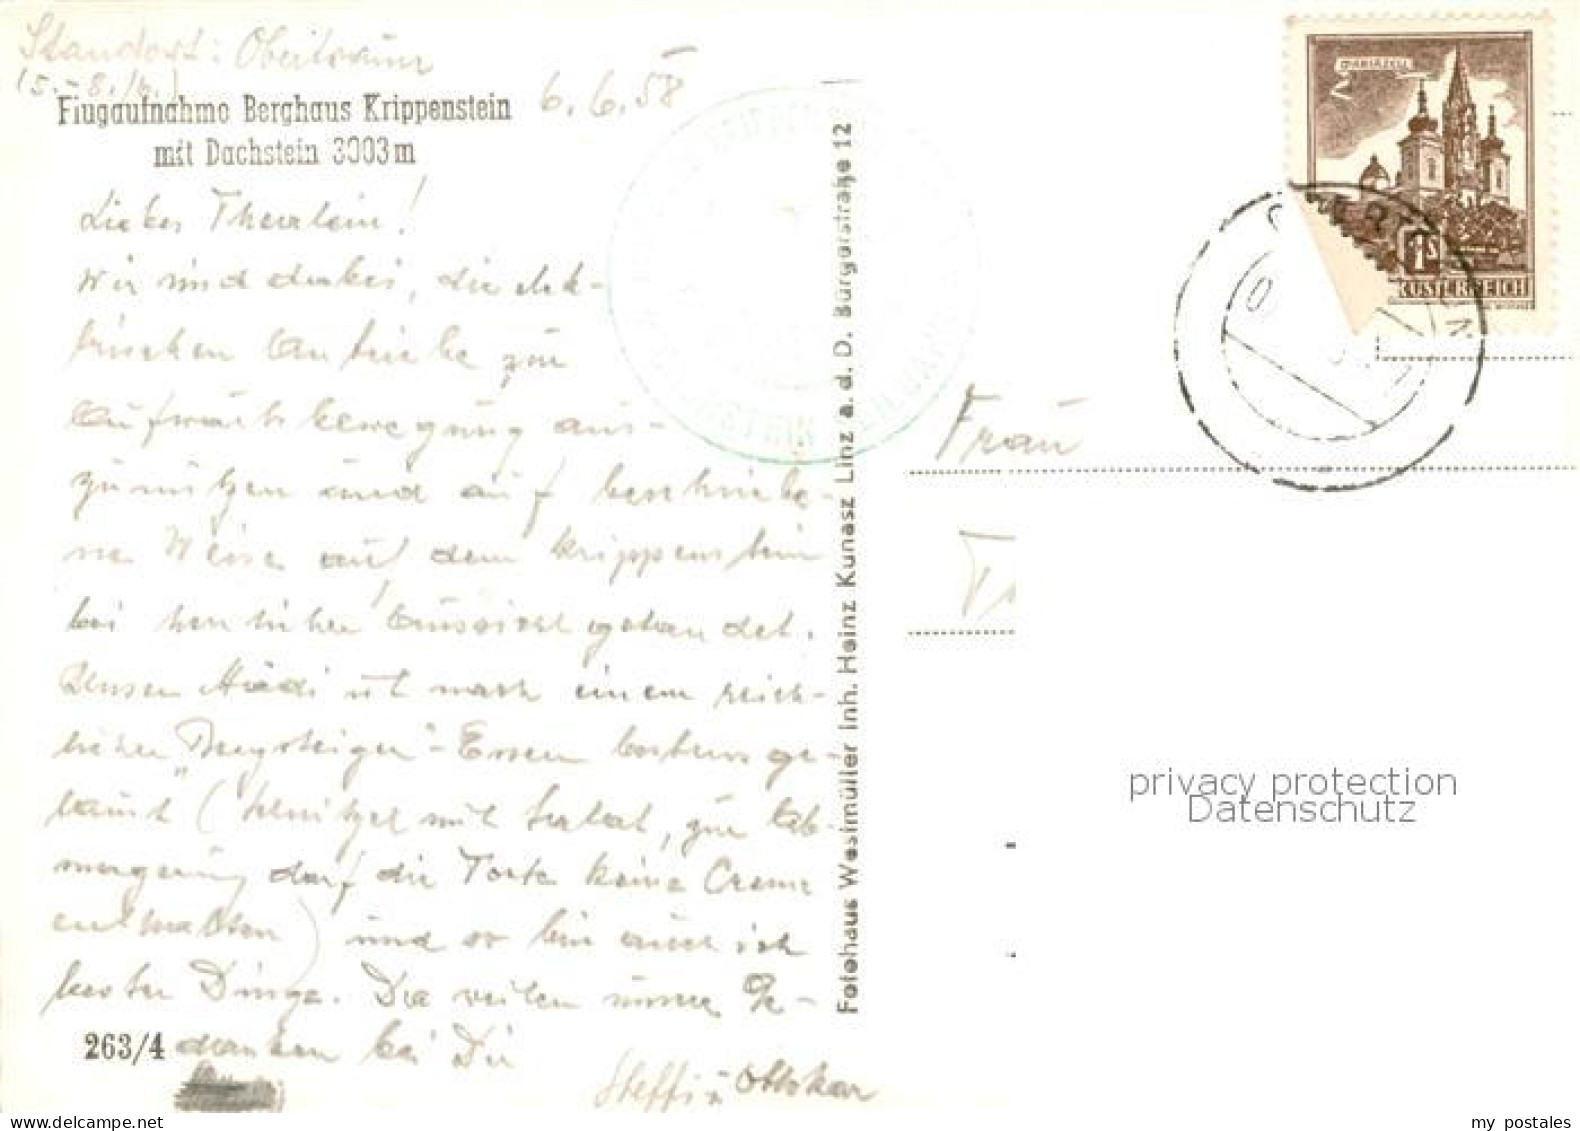 Standort: Obertraun
(5.-8./6.)
6.6.58
Flugaufnahme Berghaus Krippenstein
mit Dachstein 3003m
Liebes Thereslein!
Wir sind dabei, die elek-
trischen Antriebe zur
Aufwärtsbewegung aus-
zunützen und auf beschriebe-
ne Weise auf dem Krippenstein
bei herrlicher Aussicht gelandet.
Unsere Heidi ist nach einem reich-
lichen "Bergsteiger"-Essen bestens ge-
launt (Schnitzel mit Salat, zur Ab-
magerung darf die Torte keine Creme
enthalten) und so bin auch ich
bester Dinge. Da weilen unsere Ge-
danken bei Dir
Steffi u. Ottokar
263/4
Fotohaus Westmüller Inh. Heinz Kunasz Linz a. d. D. Bürgerstraße 12
MARIAZELL
1 S
REPUBLIK ÖSTERREICH
OBERTRAUN
Frau
privacy protection
Datenschutz
my postales